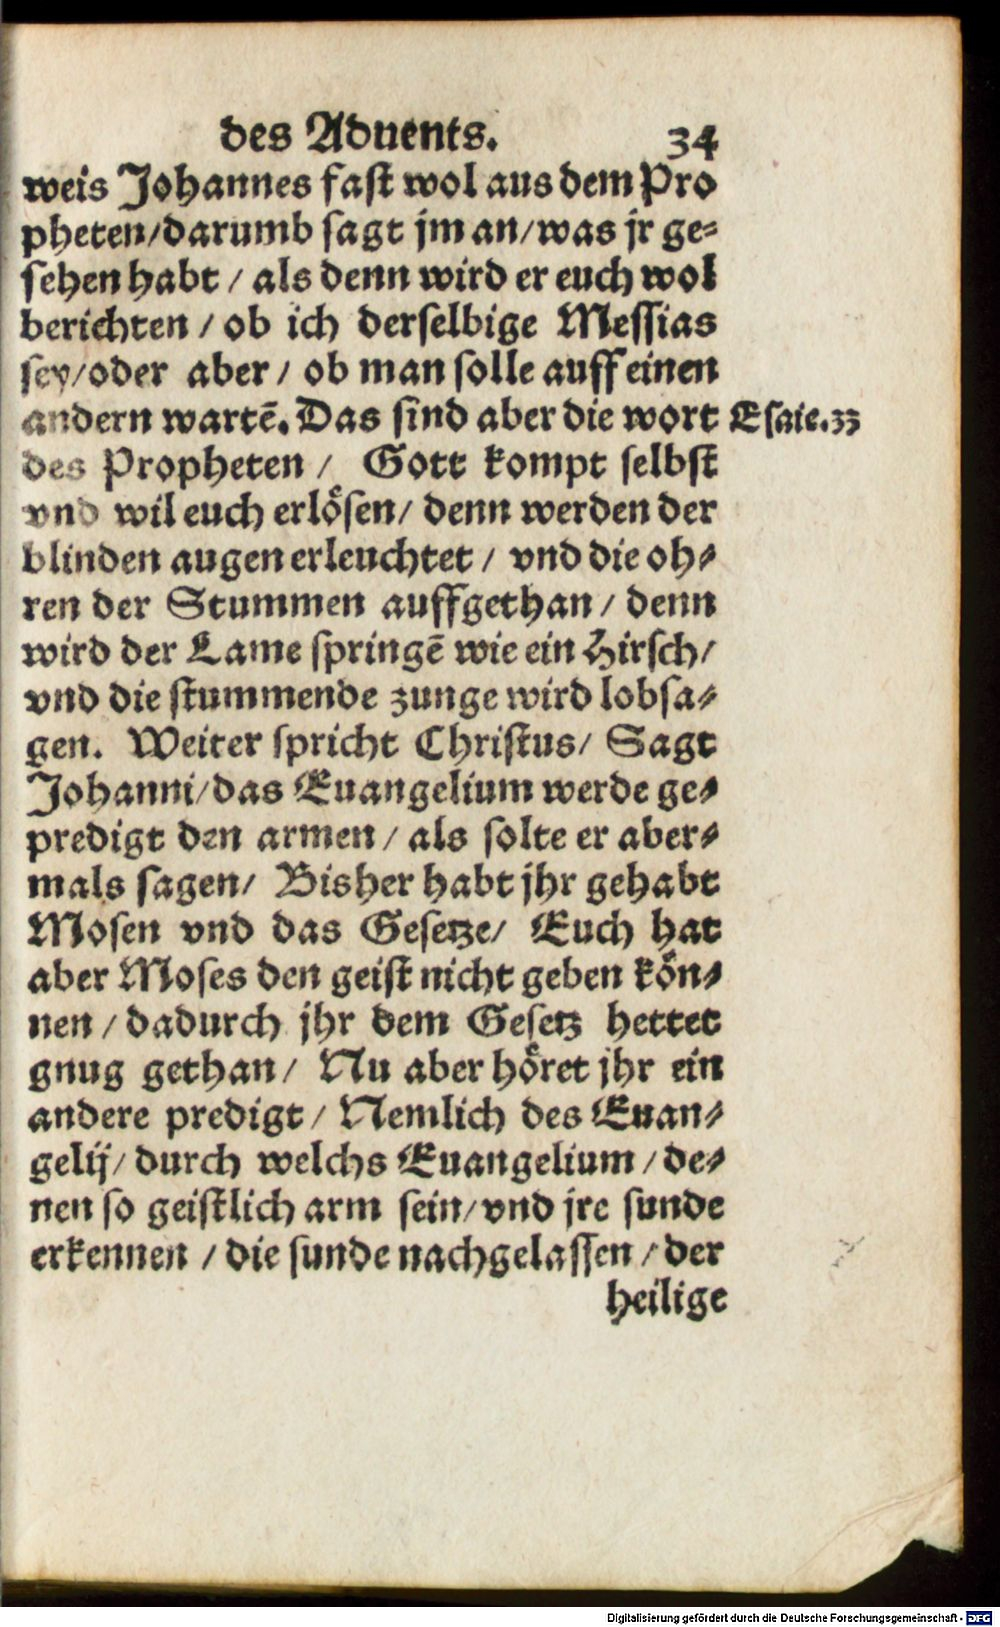 des Aduents. 34
weis Johannes fast wol aus dem Pro
pheten/darumb sagt jm an/was jr ge-
sehen habt / als denn wird er euch wol
berichten / ob ich derselbige Messias
sey/oder aber / ob man solle auff einen
andern wartē. Das sind aber die wort Esaie.33
des Propheten / Gott kompt selbst
vnd wil euch erlösen/ denn werden der
blinden augen erleuchtet / vnd die oh-
ren der Stummen auffgethan / denn
wird der Lame springē wie ein Hirsch/
vnd die stummende zunge wird lobsa-
gen. Weiter spricht Christus/ Sagt
Johanni/das Euangelium werde ge-
predigt den armen / als solte er aber-
mals sagen/ Bisher habt jhr gehabt
Mosen vnd das Gesetze/ Euch hat
aber Moses den geist nicht geben kön-
nen / dadurch jhr dem Gesetz hettet
gnug gethan / Nu aber höret jhr ein
andere predigt / Nemlich des Euan-
gelij/ durch welchs Euangelium / de-
nen so geistlich arm sein/vnd jre sunde
erkennen / die sunde nachgelassen / der
heilige
Digitalisierung gefördert durch die Deutsche Forschungsgemeinschaft - DFG